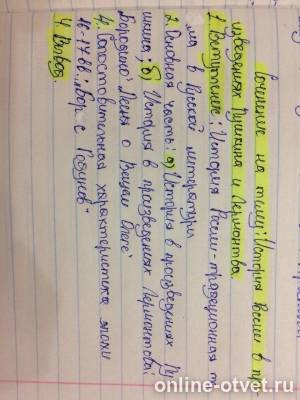 Сочинение на тему: История России в пр
изведениях Пушкина и Лермонтова.
1. Вступление: История России - традиционная те
ма в русской литературе
2. Основная часть: а) История в произведениях Пу
шкина; б) История в произведениях Лермонтова:
Бородино; Песня о Вещем Олеге
4) Сопоставительная характеристика эпохи
16-17 вв.: Борис Годунов -
4. Вывод.
online-otvet.ru